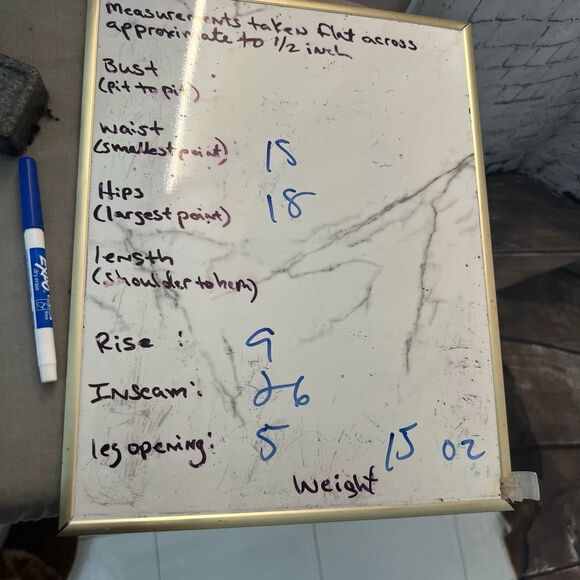 Measurements taken flat across
approximate to 1/2 inch
Bust :
(pit to pit)
Waist
(smallest point) 15
Hips
(largest point) 18
length
(shoulder to hem)
Rise : 9
Inseam : 26
leg opening : 5 15 oz
Weight
EXPO
dry erase